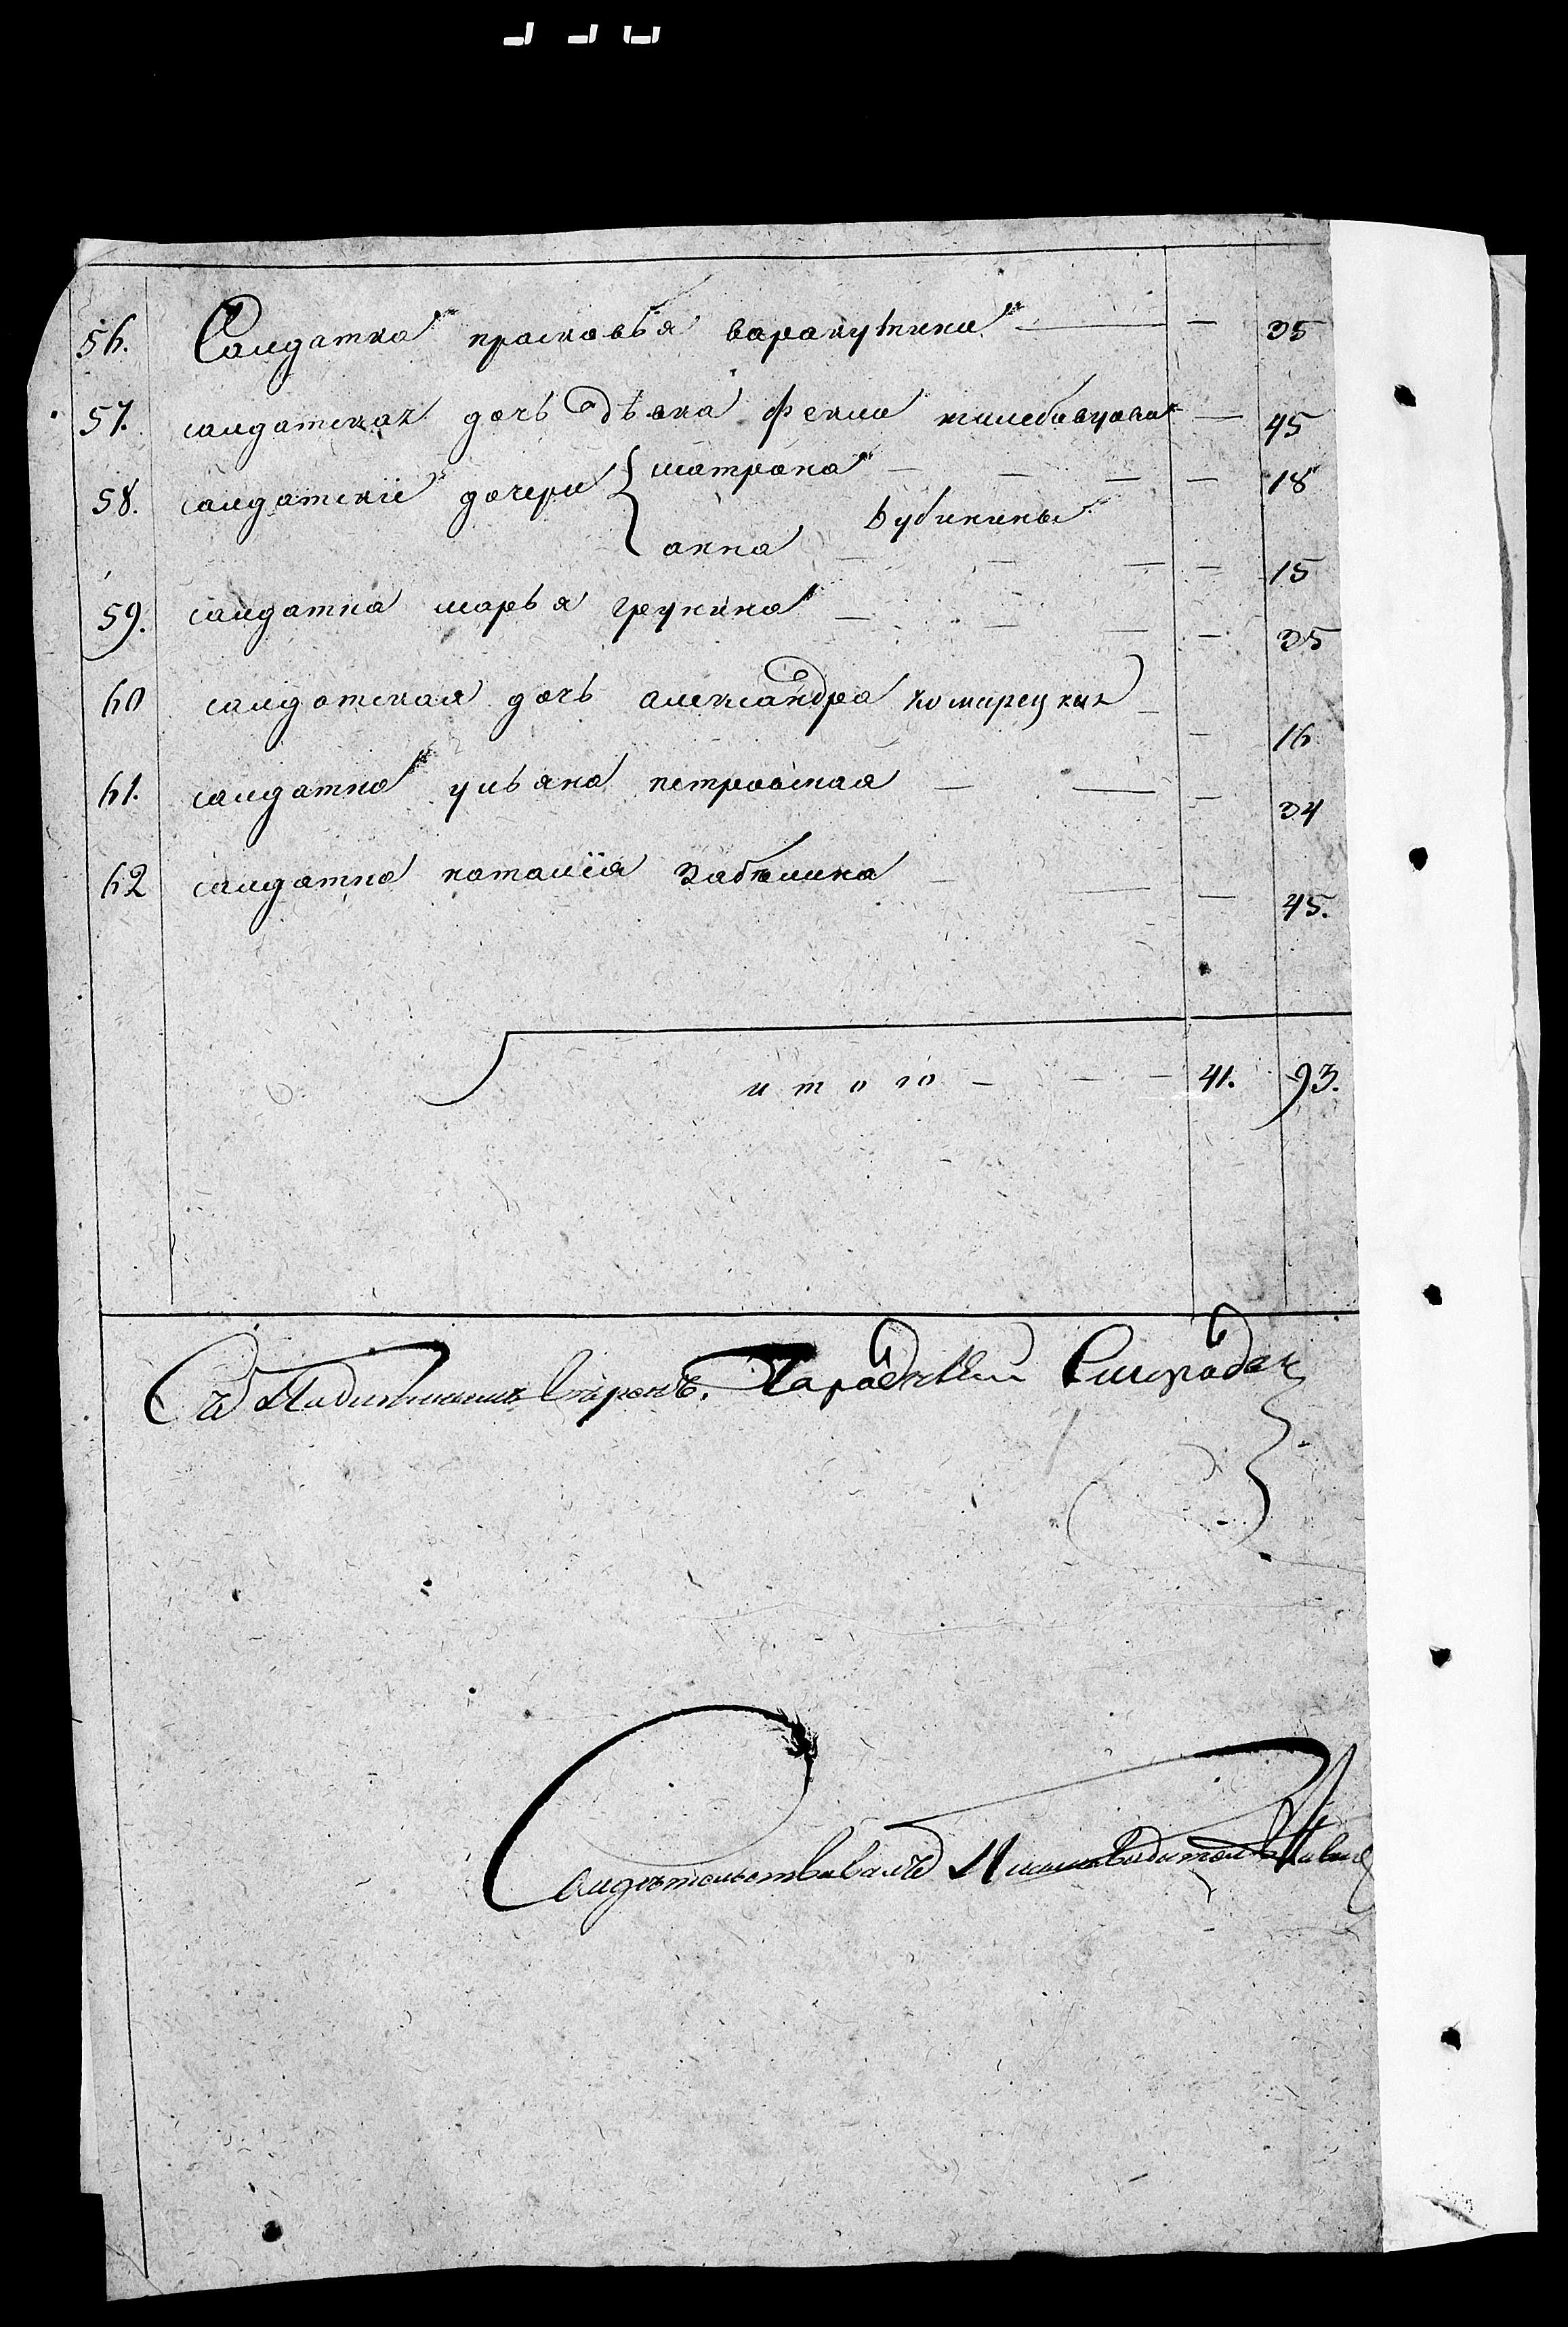 56. Салдатка прасковья варакутина — — 35
57. салдатская дочь дѣвка фекла — 45
58. салдатскіе дочери { матрона — — — — 18
Бубикины
анна — — — — 15
59. салдатка марья грукина — — — — 35
60 салдатская дочь александра комарецкая — — 16
61. салдатка ульяна петровская — — — 34
62 салдатка наталія Забѣлина — — — 45.
итого — — — 41. 93.
Съ Подлиннымъ вѣрно.
Свидѣтельствовалъ